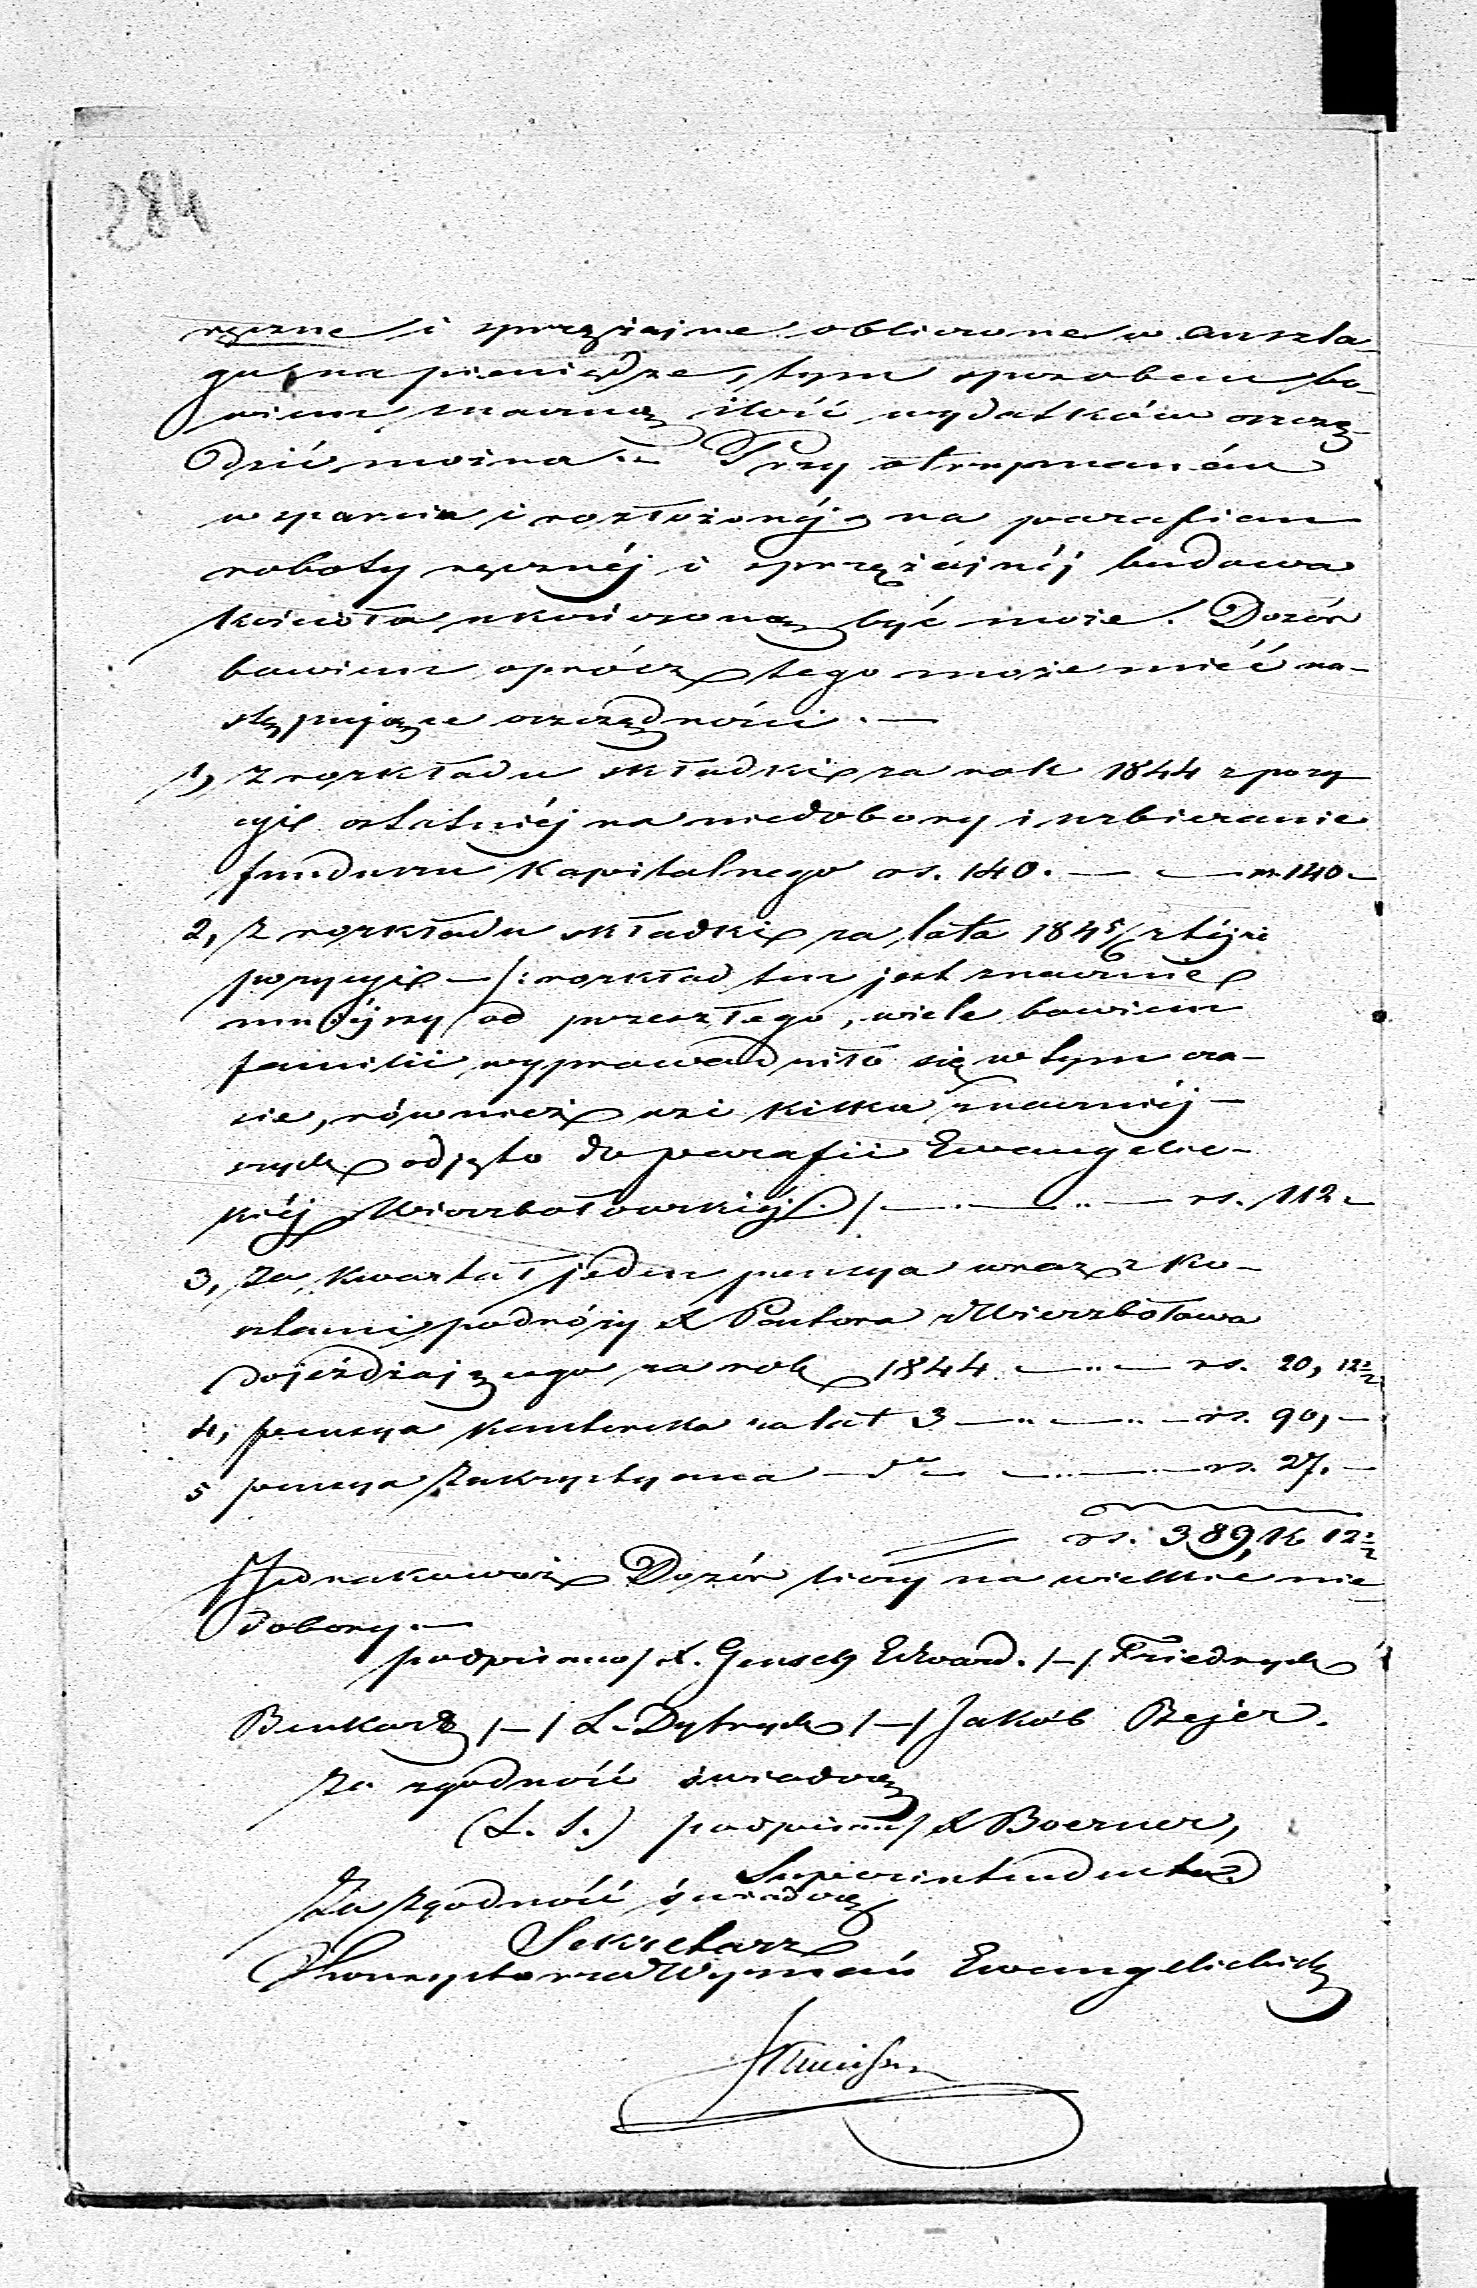 284
ręczne i sprzężajne obliczone w anszla-
gu na pieniądze, tym sposobem bo-
wiem znaczną ilość wydatków oszczę-
dzić można. — Przy otrzymaniu
wsparcia i rozłożonéj na parafian
roboty ręcznéj i sprzężajnéj budowa
kościoła ukończoną być może. Dozór
bowiem oprócz tego może mieć na-
stępujące oszczędności. —
1, z rozkładu składki za rok 1844 z pozy-
cyi ostatniéj na niedobory i uzbieranie
funduszu kapitalnego rs. 140. — — rs. 140 —
2, z rozkładu składki za lata 184 5/6 z téjże
pozycyi — /: rozkład ten jest znacznie
mniéjszy od przeszłego, wiele bowiem
familii wyprowadziło się w tym cza-
sie, również wsi kilka znaczniéj-
szych odjęto do parafii Ewangelic-
kiéj Wierzbołowskiéj :/ — — .. — rs. 112 —
3, za kwartał jeden pensya wraz z ko-
sztami podróży X Pastora z Wierzbołowa
dojeżdżającego za rok 1844. — .. — rs. 20, 12½
4, pensya kantorska za lat 3 — .. — .. — rs. 90, —
5 pensya Zakrystyana — do — .. — . — rs. 27. —
rs. 389, k 12½
Jednakowoż Dozór liczy na wielkie nie
dobory. —
podpisano / X. Gensch Edward. /—/ Friedrych
Benkard /—/ L. Dytrych /—/ Jakób Bejer.
Za zgodność świadczą
(L. S.) podpisano / X Boerner,
Superintendent
Za zgodność świadczą
Sekretarz
Konsystorza Wyznań Ewangelickich